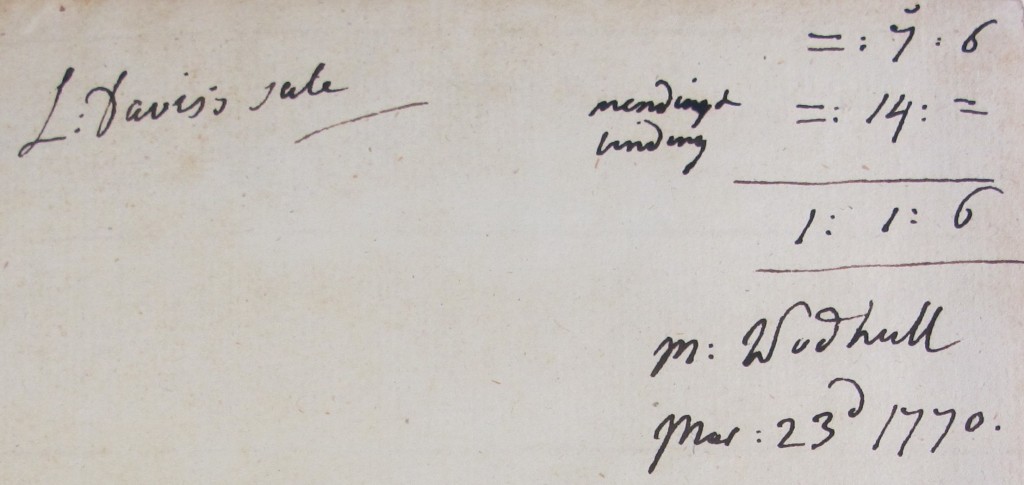 =: 7: 6
L: Davis's sale
mending &
binding
=: 14: =
1: 1: 6
M: Wodhull
Mar: 23d 1770.